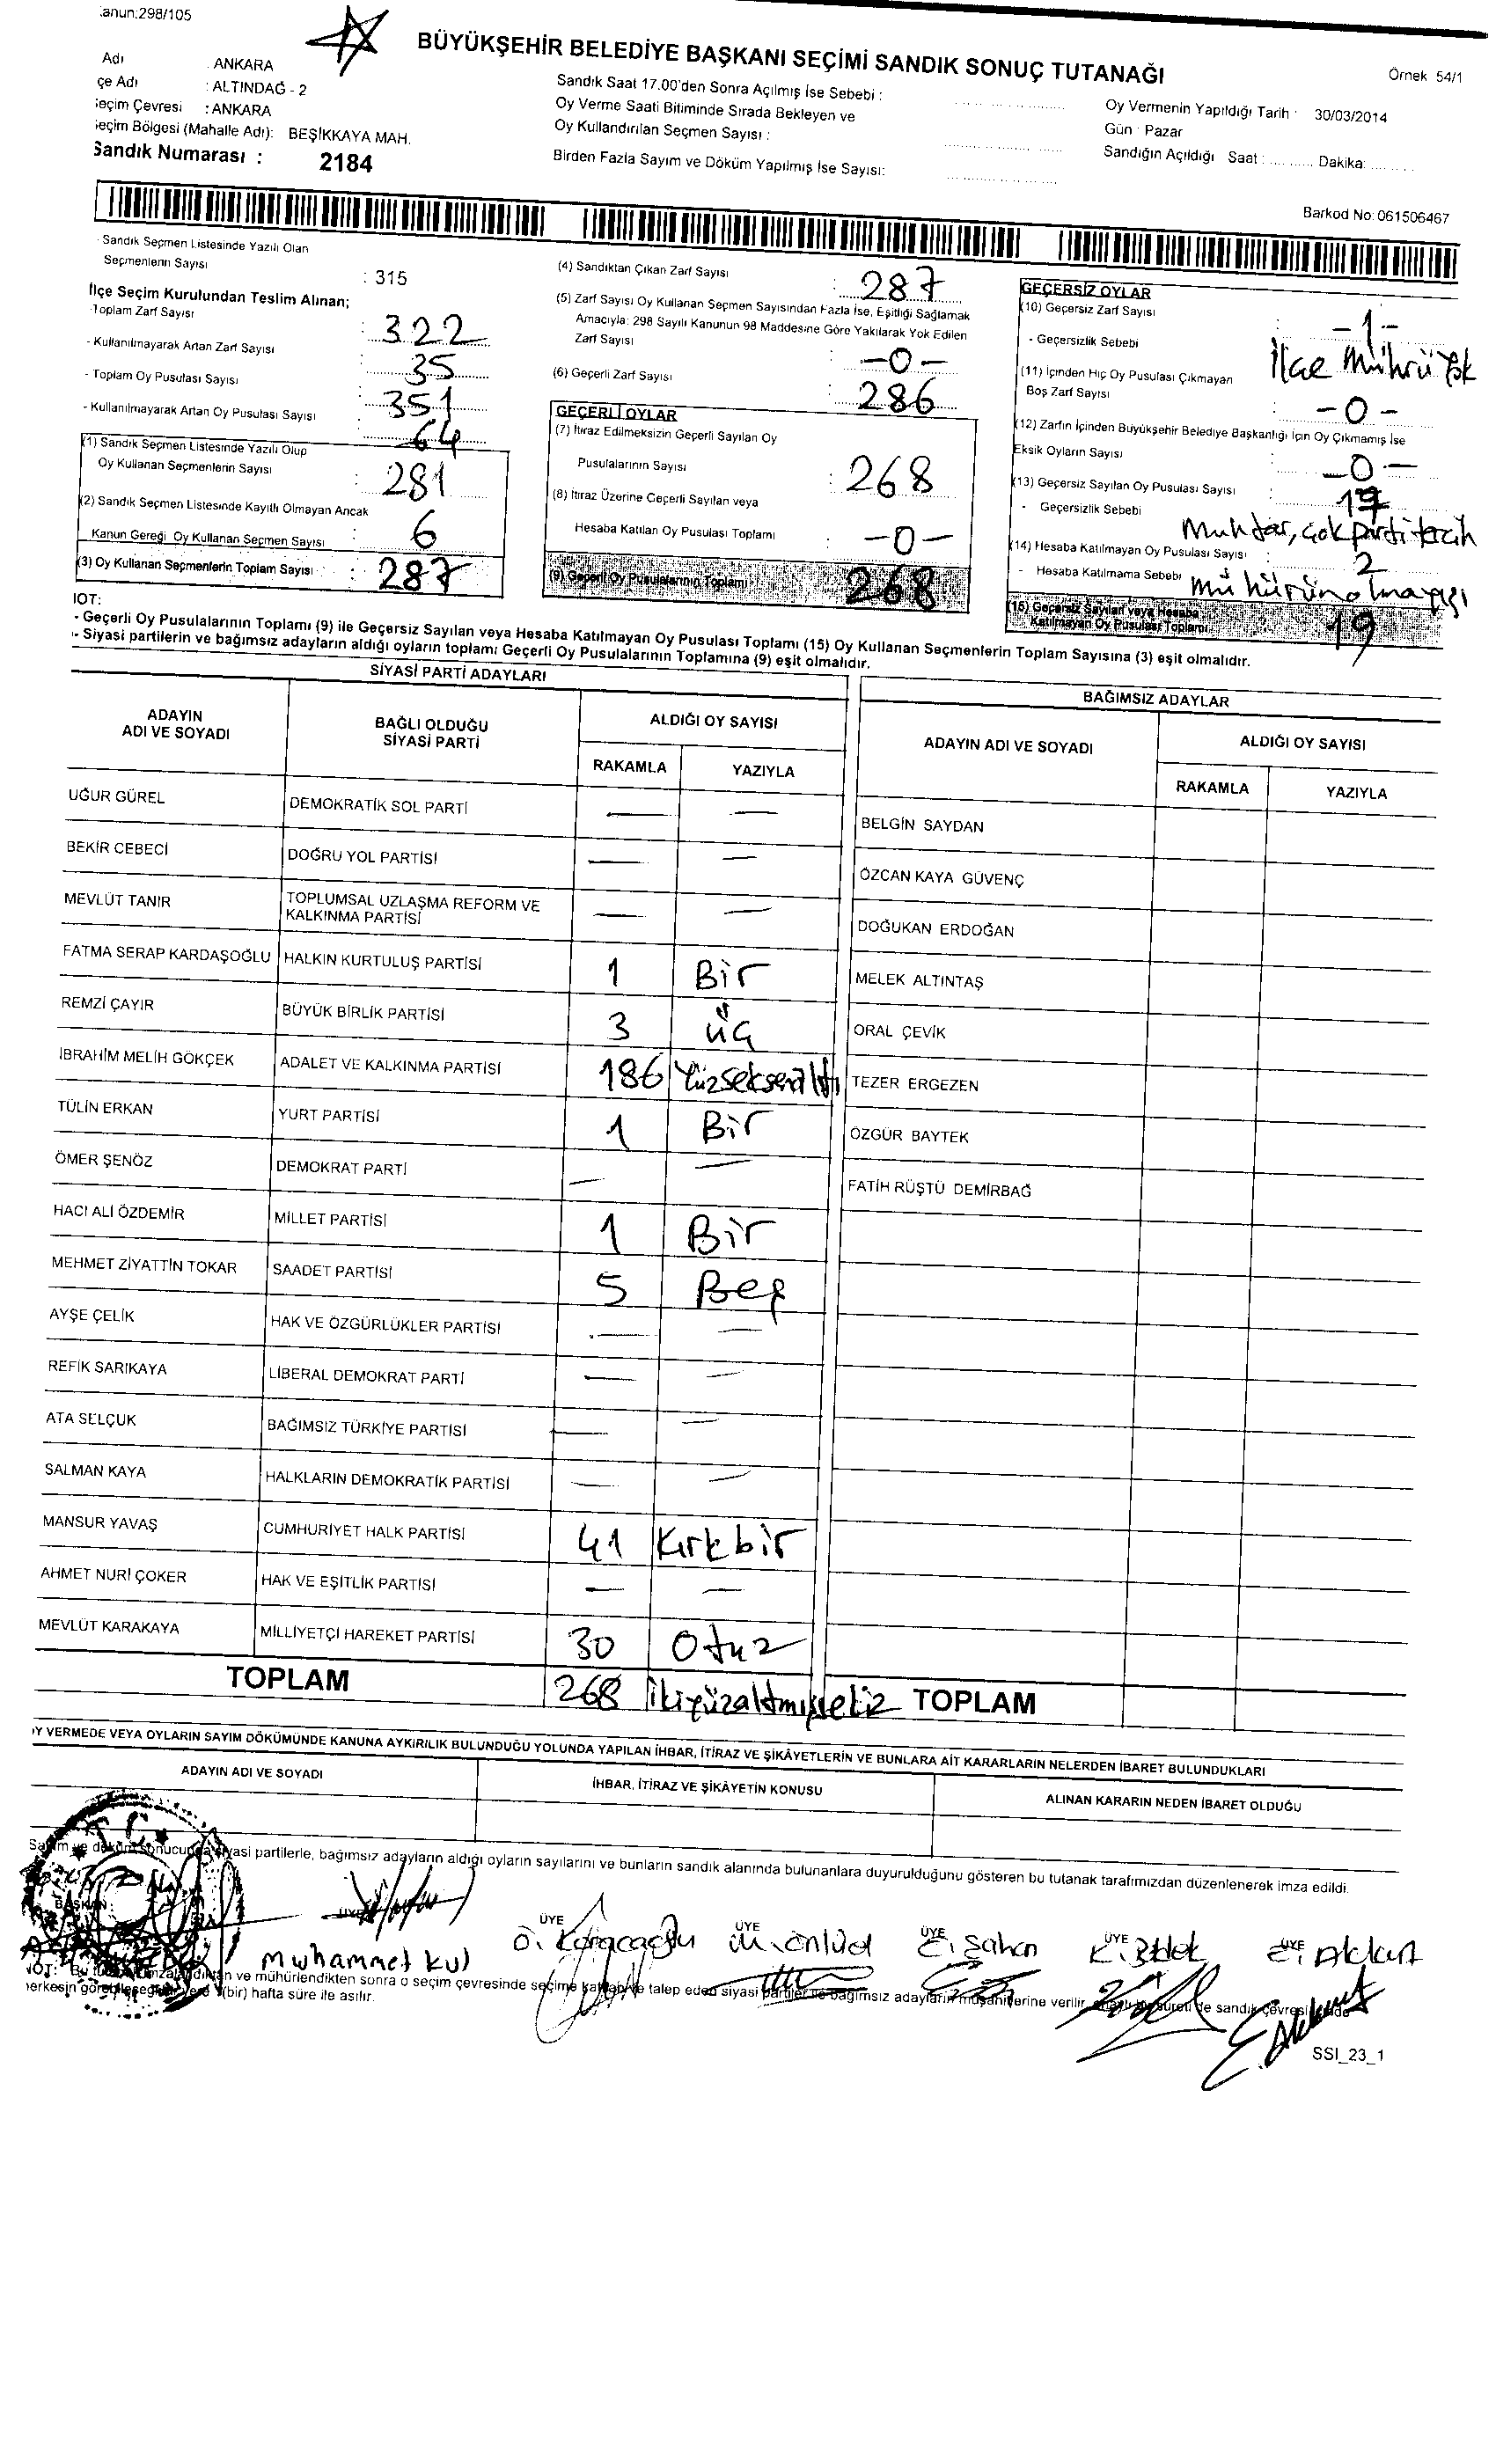 anun:298/105
BÜYÜKŞEHİR BELEDİYE BAŞKANI SEÇİMİ SANDIK SONUÇ TUTANAĞI
Örnek 54/1
Adı : ANKARA
çe Adı : ALTINDAĞ - 2
eçim Çevresi : ANKARA
eçim Bölgesi (Mahalle Adı): BEŞİKKAYA MAH.
Sandık Numarası : 2184
Sandık Saat 17.00'den Sonra Açılmış İse Sebebi :
Oy Verme Saati Bitiminde Sırada Bekleyen ve
Oy Kullandırılan Seçmen Sayısı :
Birden Fazla Sayım ve Döküm Yapılmış İse Sayısı:
Oy Vermenin Yapıldığı Tarih : 30/03/2014
Gün : Pazar
Sandığın Açıldığı Saat : .......... Dakika: ..........
Barkod No: 061506467
- Sandık Seçmen Listesinde Yazılı Olan
Seçmenlerin Sayısı : 315
İlçe Seçim Kurulundan Teslim Alınan;
-Toplam Zarf Sayısı : 322
- Kullanılmayarak Artan Zarf Sayısı : 35
- Toplam Oy Pusulası Sayısı : 351
- Kullanılmayarak Artan Oy Pusulası Sayısı : 64
(1) Sandık Seçmen Listesinde Yazılı Olup
Oy Kullanan Seçmenlerin Sayısı : 281
(2) Sandık Seçmen Listesinde Kayıtlı Olmayan Ancak
Kanun Gereği Oy Kullanan Seçmen Sayısı : 6
(3) Oy Kullanan Seçmenlerin Toplam Sayısı : 287
(4) Sandıktan Çıkan Zarf Sayısı : 287
(5) Zarf Sayısı Oy Kullanan Seçmen Sayısından Fazla İse, Eşitliği Sağlamak
Amacıyla: 298 Sayılı Kanunun 98 Maddesine Göre Yakılarak Yok Edilen
Zarf Sayısı : -0-
(6) Geçerli Zarf Sayısı : 286
GEÇERLİ OYLAR
(7) İtiraz Edilmeksizin Geçerli Sayılan Oy
Pusulalarının Sayısı : 268
(8) İtiraz Üzerine Geçerli Sayılan veya
Hesaba Katılan Oy Pusulası Toplamı : -0-
(9) Geçerli Oy Pusulalarının Toplamı : 268
GEÇERSİZ OYLAR
(10) Geçersiz Zarf Sayısı : -1-
- Geçersizlik Sebebi İlçe Mührü Yok
(11) İçinden Hiç Oy Pusulası Çıkmayan
Boş Zarf Sayısı : -0-
(12) Zarfın İçinden Büyükşehir Belediye Başkanlığı İçin Oy Çıkmamış İse
Eksik Oyların Sayısı : -0-
(13) Geçersiz Sayılan Oy Pusulası Sayısı : 17
- Geçersizlik Sebebi Muhtar, çok parti tercih
(14) Hesaba Katılmayan Oy Pusulası Sayısı : 2
- Hesaba Katılmama Sebebi Mühürün olmayışı
(15) Geçersiz Sayılan veya Hesaba
Katılmayan Oy Pusulası Toplamı : 19
NOT:
- Geçerli Oy Pusulalarının Toplamı (9) ile Geçersiz Sayılan veya Hesaba Katılmayan Oy Pusulası Toplamı (15) Oy Kullanan Seçmenlerin Toplam Sayısına (3) eşit olmalıdır.
- Siyasi partilerin ve bağımsız adayların aldığı oyların toplamı Geçerli Oy Pusulalarının Toplamına (9) eşit olmalıdır.
SİYASİ PARTİ ADAYLARI
ADAYIN ADI VE SOYADI BAĞLI OLDUĞU SİYASİ PARTİ ALDIĞI OY SAYISI
RAKAMLA YAZIYLA
UĞUR GÜREL DEMOKRATİK SOL PARTİ — —
BEKİR CEBECİ DOĞRU YOL PARTİSİ — —
MEVLÜT TANIR TOPLUMSAL UZLAŞMA REFORM VE KALKINMA PARTİSİ — —
FATMA SERAP KARDAŞOĞLU HALKIN KURTULUŞ PARTİSİ 1 Bir
REMZİ ÇAYIR BÜYÜK BİRLİK PARTİSİ 3 üç
İBRAHİM MELİH GÖKÇEK ADALET VE KALKINMA PARTİSİ 186 Yüzseksenaltı
TÜLİN ERKAN YURT PARTİSİ 1 Bir
ÖMER ŞENÖZ DEMOKRAT PARTİ — —
HACI ALİ ÖZDEMİR MİLLET PARTİSİ 1 Bir
MEHMET ZİYATTİN TOKAR SAADET PARTİSİ 5 Beş
AYŞE ÇELİK HAK VE ÖZGÜRLÜKLER PARTİSİ — —
REFİK SARIKAYA LİBERAL DEMOKRAT PARTİ — —
ATA SELÇUK BAĞIMSIZ TÜRKİYE PARTİSİ — —
SALMAN KAYA HALKLARIN DEMOKRATİK PARTİSİ — —
MANSUR YAVAŞ CUMHURİYET HALK PARTİSİ 41 Kırkbir
AHMET NURİ ÇOKER HAK VE EŞİTLİK PARTİSİ — —
MEVLÜT KARAKAYA MİLLİYETÇİ HAREKET PARTİSİ 30 Otuz
TOPLAM 268 ikiyüzaltmışsekiz
BAĞIMSIZ ADAYLAR
ADAYIN ADI VE SOYADI ALDIĞI OY SAYISI
RAKAMLA YAZIYLA
BELGİN SAYDAN
ÖZCAN KAYA GÜVENÇ
DOĞUKAN ERDOĞAN
MELEK ALTINTAŞ
ORAL ÇEVİK
TEZER ERGEZEN
ÖZGÜR BAYTEK
FATİH RÜŞTÜ DEMİRBAĞ
TOPLAM
OY VERMEDE VEYA OYLARIN SAYIM DÖKÜMÜNDE KANUNA AYKIRILIK BULUNDUĞU YOLUNDA YAPILAN İHBAR, İTİRAZ VE ŞİKÂYETLERİN VE BUNLARA AİT KARARLARIN NELERDEN İBARET BULUNDUKLARI
ADAYIN ADI VE SOYADI İHBAR, İTİRAZ VE ŞİKÂYETİN KONUSU ALINAN KARARIN NEDEN İBARET OLDUĞU
T.C.
Sayım ve döküm sonucunda siyasi partilerle, bağımsız adayların aldığı oyların sayılarını ve bunların sandık alanında bulunanlara duyurulduğunu gösteren bu tutanak tarafımızdan düzenlenerek imza edildi.
BAŞKAN ÜYE ÜYE ÜYE ÜYE ÜYE ÜYE
Muhammet Kul Ö. Karacaoğlu M. Ünlüol E. Şahan E. Akkurt
NOT: Bu tutanak imzalandıktan ve mühürlendikten sonra o seçim çevresinde seçime katılan ve talep eden siyasi partiler ile bağımsız adayların müşahitlerine verilir, de sandık çevresinde
herkesin görebileceği yerde (bir) hafta süre ile asılır.
SSI_23_1